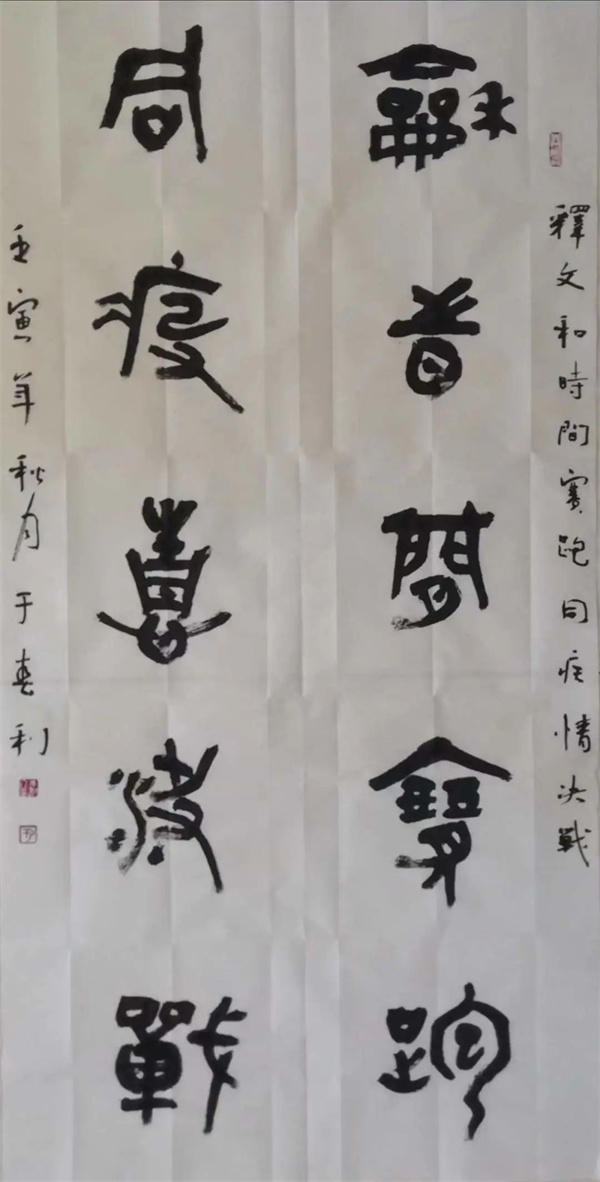 釋文和時間賽跑同疫情决戰
龢旹間賽跑
同疫情決戰
壬寅年秋月于春利